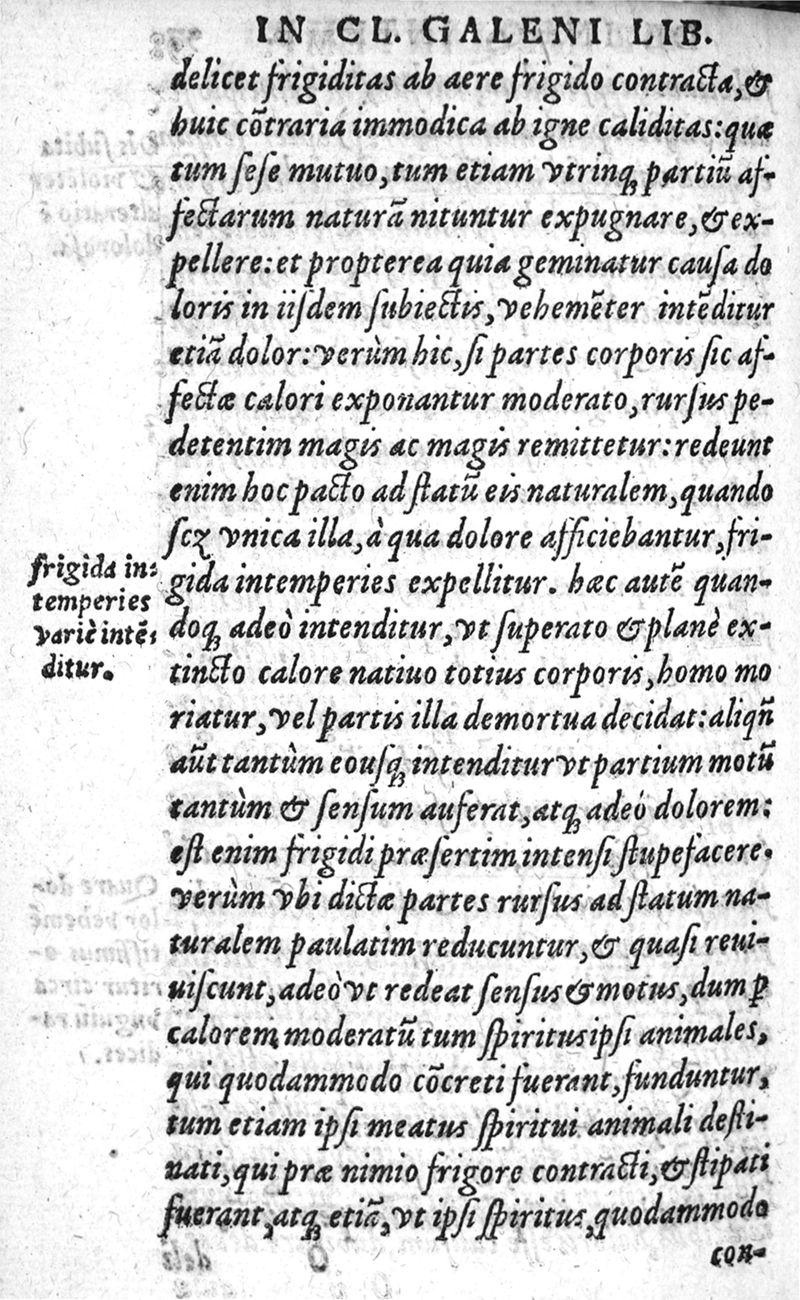 IN CL. GALENI LIB.
delicet frigiditas ab aere frigido contracta, &
huic cōtraria immodica ab igne caliditas: quæ
tum sese mutuo, tum etiam vtrinq; partiū af-
fectarum naturā nituntur expugnare, & ex-
pellere: et propterea quia geminatur causa do
loris in iisdem subiectis, vehemēter intēditur
etiā dolor: verùm hic, si partes corporis sic af-
fectæ calori exponantur moderato, rursus pe-
detentim magis ac magis remittetur: redeunt
enim hoc pacto ad statū eis naturalem, quando
scꝫ vnica illa, à qua dolore afficiebantur, fri-
gida intemperies expellitur. hæc autē quan-
doq; adeò intenditur, vt superato & planè ex-
tincto calore natiuo totius corporis, homo mo
riatur, vel partis illa demortua decidat: aliqñ
aūt tantùm eousq; intenditur vt partium motū
tantùm & sensum auferat, atq; adeò dolorem:
est enim frigidi præsertim intensi stupefacere.
verùm vbi dictæ partes rursus ad statum na-
turalem paulatim reducuntur, & quasi reui-
uiscunt, adeò vt redeat sensus & motus, dum ꝑ
calorem moderatū tum spiritus ipsi animales,
qui quodammodo cōcreti fuerant, funduntur,
tum etiam ipsi meatus spiritui animali desti-
nati, qui præ nimio frigore contracti, & stipati
fuerant, atq; etiā, vt ipsi spiritus, quodammodo
con-
frigida in-
temperies
variè intē-
ditur.